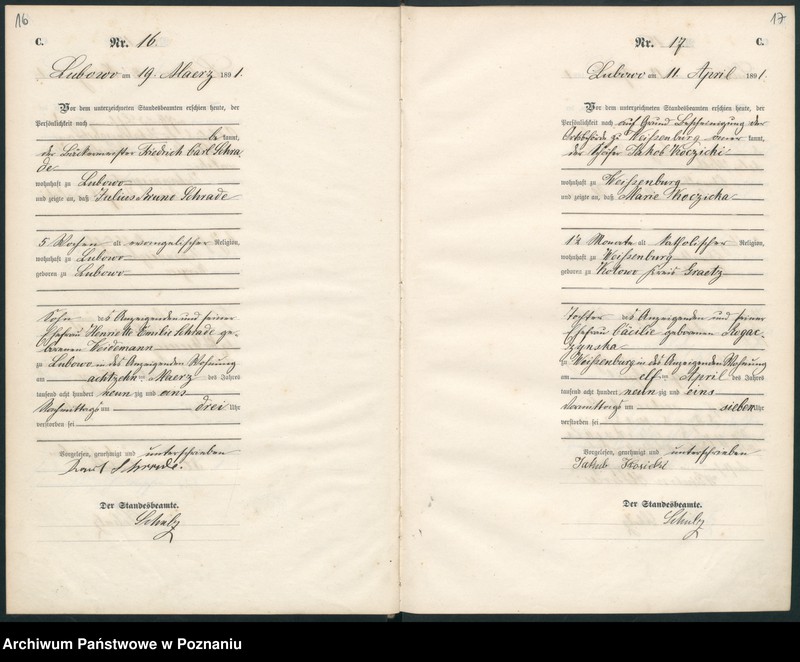 16
C.
Nr. 16.
Lubowo am 19. Maerz 1891.
Vor dem unterzeichneten Standesbeamten erschien heute, der
Persönlichkeit nach
be kannt,
der Bäckermeister Friedrich Carl Schra-
de
wohnhaft zu Lubowo
und zeigte an, daß Julius Bruno Schrade
5 Wochen alt evangelischer Religion,
wohnhaft zu Lubowo
geboren zu Lubowo
Sohn des Anzeigenden und seiner
Ehefrau Henriette Emilie Schrade ge-
borenen Weidemann
zu Lubowo in des Anzeigenden Wohnung
am achtzehnten Maerz des Jahres
tausend acht hundert neun zig und eins
Nachmittags um drei Uhr
verstorben sei
Vorgelesen, genehmigt und unterschrieben
Karl Schrade.
Der Standesbeamte.
Schulz
17
Nr. 17.
C.
Lubowo am 11 April 1891.
Vor dem unterzeichneten Standesbeamten erschien heute, der
Persönlichkeit nach auf Grund Bescheinigung der
Ortsbehörde zu Weißenburg aner kannt,
der Schäfer Jakob Koczicki
wohnhaft zu Weißenburg
und zeigte an, daß Marie Koczicka
12 Monate alt katholischer Religion,
wohnhaft zu Weißenburg
geboren zu Kotowo Kreis Graetz
Tochter des Anzeigenden und seiner
Ehefrau Cäcilie geborenen Rogac-
zynska
zu Weißenburg in des Anzeigenden Wohnung
am elften April des Jahres
tausend acht hundert neun zig und eins
Vormittags um sieben Uhr
verstorben sei
Vorgelesen, genehmigt und unterschrieben
Jakub
Der Standesbeamte.
Schulz
Archiwum Państwowe w Poznaniu